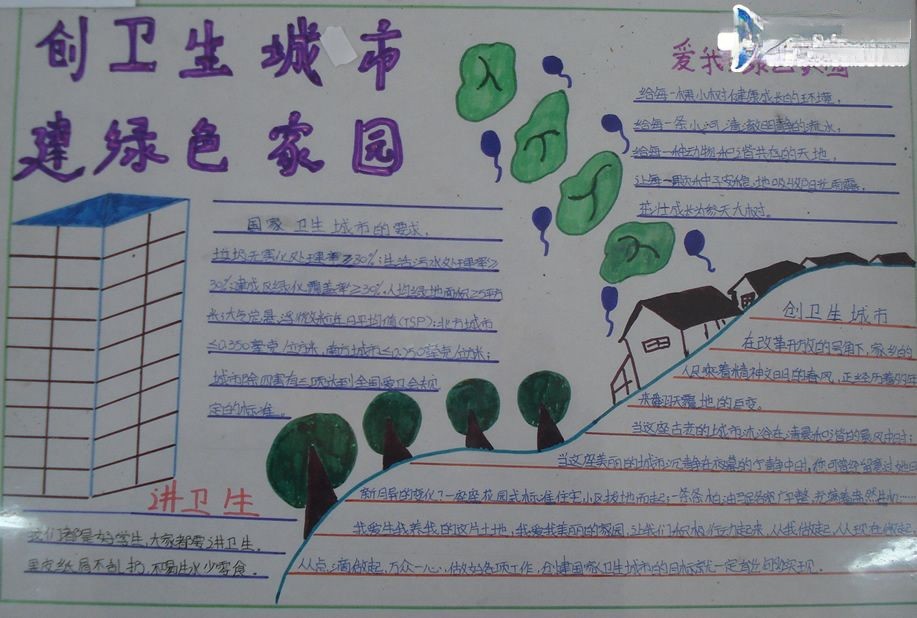 创卫生城市
建绿色家园
爱我绿色家园
给每一棵小树健康成长的环境，
给每一条小河清澈明静的流水，
给每一种动物和谐共存的天地，
让每一颗种子安稳地吸收阳光雨露，
茁壮成长为参天大树。
国家卫生城市的要求，
垃圾无害化处理率≥80%；生活污水处理率≥
30%；建成区绿化覆盖率≥30%，人均绿地面积≥5平方
米；大气总悬浮微粒年日平均值(TSP)：北方城市
≤0.350毫克/立方米，南方城市≤0.250毫克/立方米；
城市除四害有三项达到全国爱卫会规
定的标准。
创卫生城市
在改革开放的号角下，家乡的
人民乘着精神文明的春风，正经历着翻
来翻天覆地的巨变。
当这座古老的城市沐浴在清晨和谐的晨风中时；
当这座美丽的城市沉静在夜幕的宁静中时，你可曾经留意过她日
新月异的变化？一座座花园式标准住宅小区拔地而起；一条条柏油马路宽广平整，充满着盎然生机……
我爱生我养我的这片土地，我爱我美丽的家园，让我们积极行动起来，从我做起，从现在做起
从点滴做起，万众一心，做好各项工作，创建国家卫生城市的目标就一定会实现。
讲卫生
我们都是好学生，大家都要讲卫生。
果皮纸屑不乱扔，不喝生水少零食。